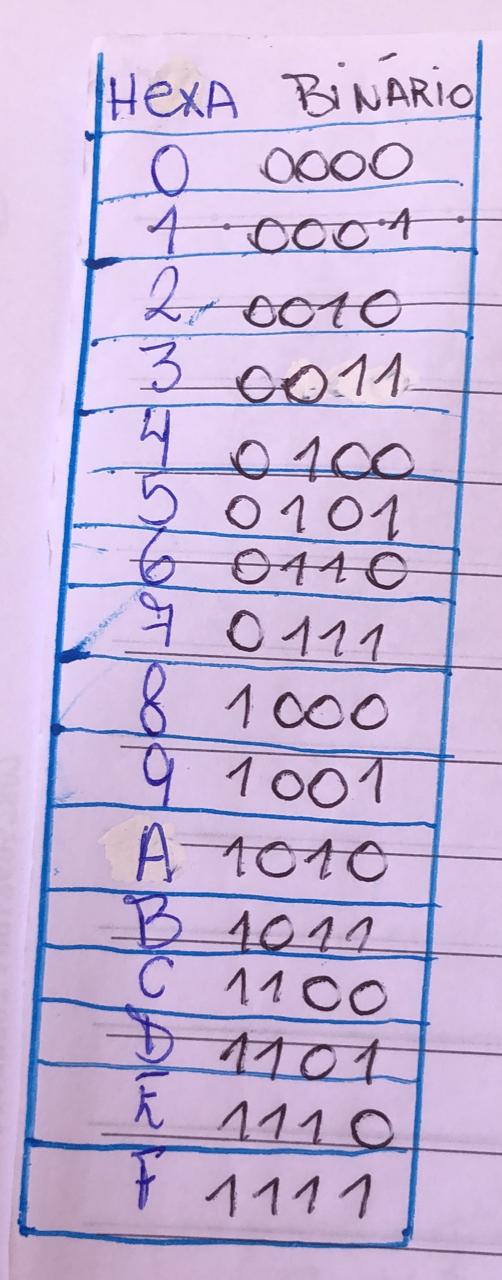 HexA BINÁRIO
0 0000
1 0001
2 0010
3 0011
4 0100
5 0101
6 0110
7 0111
8 1000
9 1001
A 1010
B 1011
C 1100
D 1101
E 1110
F 1111